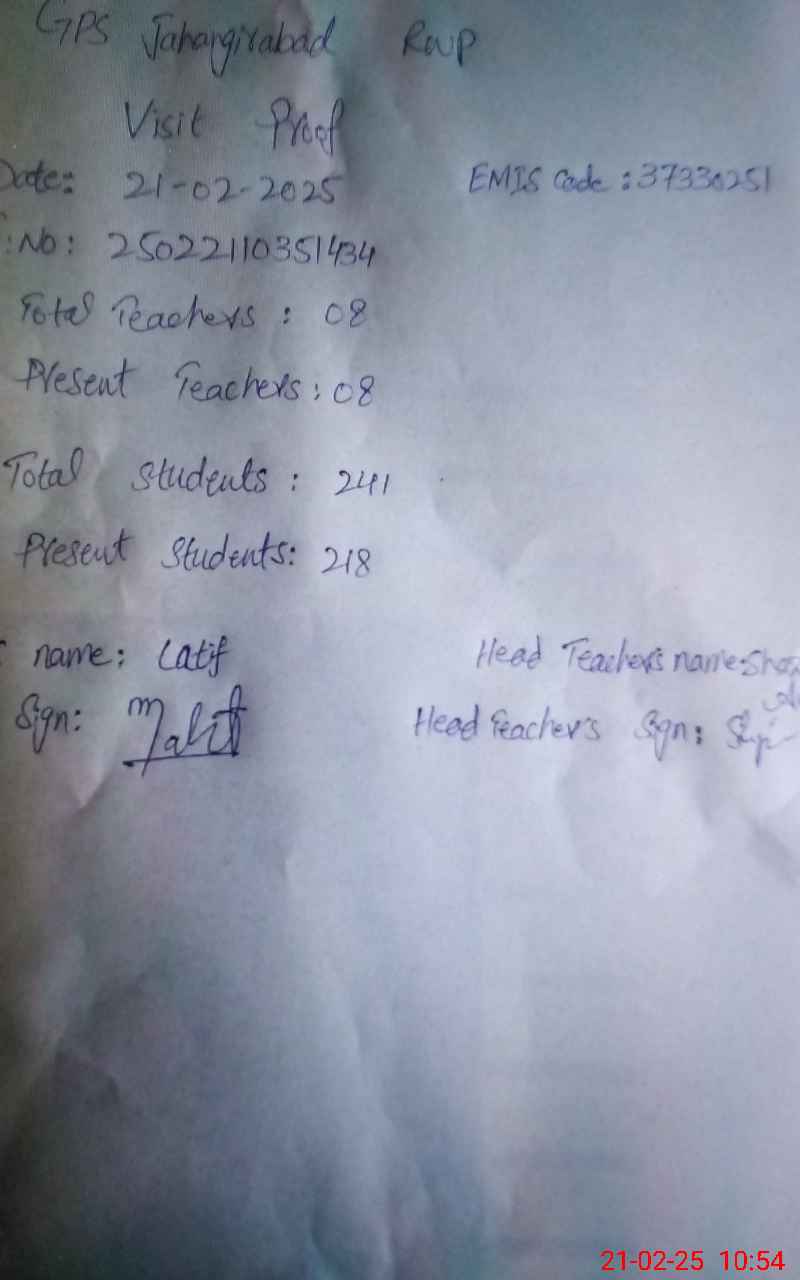 GPS Jahangirabad Rwp
Visit Proof
Date: 21-02-2025 EMIS Code : 37330251
:No: 25022110351434
Total Teachers : 08
Present Teachers : 08
Total Students : 241
Present Students: 218
name: Latif Head Teacher's name:
Sign: Head Teacher's Sign:
21-02-25 10:54